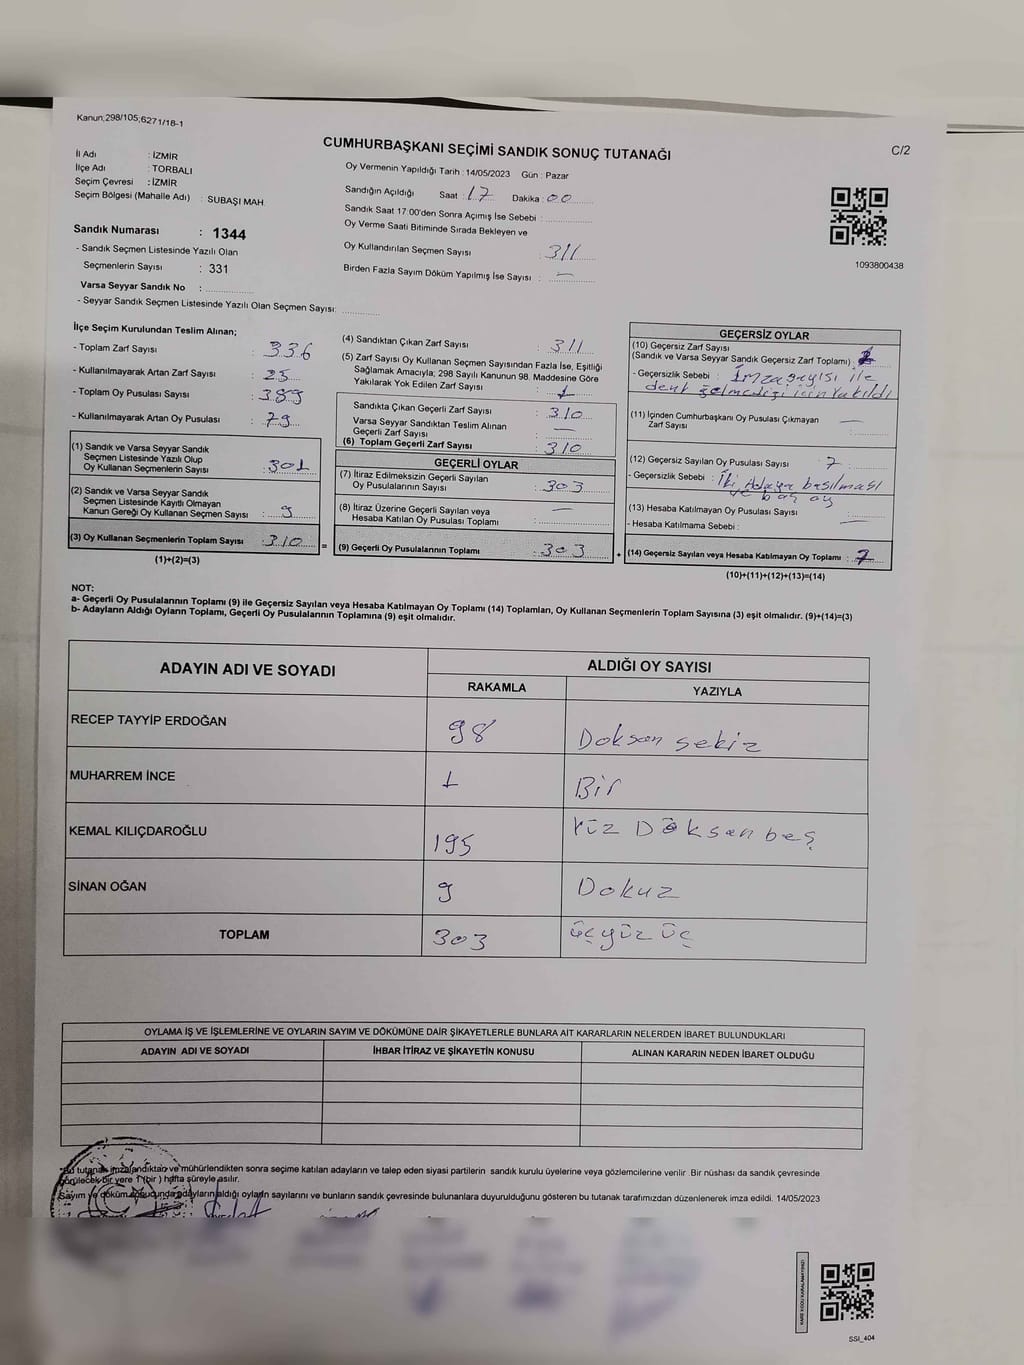 Kanun;298/105;6271/18-1
CUMHURBAŞKANI SEÇİMİ SANDIK SONUÇ TUTANAĞI
C/2
İl Adı : İZMİR
İlçe Adı : TORBALI
Seçim Çevresi : İZMİR
Seçim Bölgesi (Mahalle Adı) : SUBAŞI MAH.
Sandık Numarası : 1344
- Sandık Seçmen Listesinde Yazılı Olan
Seçmenlerin Sayısı : 331
Varsa Seyyar Sandık No :
- Seyyar Sandık Seçmen Listesinde Yazılı Olan Seçmen Sayısı:
Oy Vermenin Yapıldığı Tarih : 14/05/2023 Gün : Pazar
Sandığın Açıldığı Saat : 17 Dakika : 00
Sandık Saat 17:00'den Sonra Açımış İse Sebebi :
Oy Verme Saati Bitiminde Sırada Bekleyen ve
Oy Kullandırılan Seçmen Sayısı : 311
Birden Fazla Sayım Döküm Yapılmış İse Sayısı : —
1093800438
İlçe Seçim Kurulundan Teslim Alınan;
- Toplam Zarf Sayısı : 336
- Kullanılmayarak Artan Zarf Sayısı : 25
- Toplam Oy Pusulası Sayısı : 389
- Kullanılmayarak Artan Oy Pusulası : 79
(1) Sandık ve Varsa Seyyar Sandık
Seçmen Listesinde Yazılı Olup
Oy Kullanan Seçmenlerin Sayısı : 301
(2) Sandık ve Varsa Seyyar Sandık
Seçmen Listesinde Kayıtlı Olmayan
Kanun Gereği Oy Kullanan Seçmen Sayısı : 9
(3) Oy Kullanan Seçmenlerin Toplam Sayısı : 310
(1)+(2)=(3)
(4) Sandıktan Çıkan Zarf Sayısı : 311
(5) Zarf Sayısı Oy Kullanan Seçmen Sayısından Fazla İse, Eşitliği
Sağlamak Amacıyla; 298 Sayılı Kanunun 98. Maddesine Göre
Yakılarak Yok Edilen Zarf Sayısı : 1
Sandıkta Çıkan Geçerli Zarf Sayısı : 310
Varsa Seyyar Sandıktan Teslim Alınan
Geçerli Zarf Sayısı : —
(6) Toplam Geçerli Zarf Sayısı : 310
GEÇERLİ OYLAR
(7) İtiraz Edilmeksizin Geçerli Sayılan
Oy Pusulalarının Sayısı : 303
(8) İtiraz Üzerine Geçerli Sayılan veya
Hesaba Katılan Oy Pusulası Toplamı : —
= (9) Geçerli Oy Pusulalarının Toplamı : 303
GEÇERSİZ OYLAR
(10) Geçersiz Zarf Sayısı
(Sandık ve Varsa Seyyar Sandık Geçersiz Zarf Toplamı) :
- Geçersizlik Sebebi : İmza sayısı ile
denk gelmediği için yakıldı
(11) İçinden Cumhurbaşkanı Oy Pusulası Çıkmayan
Zarf Sayısı : —
(12) Geçersiz Sayılan Oy Pusulası Sayısı : 7
- Geçersizlik Sebebi : İki adaya basılması
ve boş oy
(13) Hesaba Katılmayan Oy Pusulası Sayısı : —
- Hesaba Katılmama Sebebi : —
+ (14) Geçersiz Sayılan veya Hesaba Katılmayan Oy Toplamı : 7
(10)+(11)+(12)+(13)=(14)
NOT:
a- Geçerli Oy Pusulalarının Toplamı (9) ile Geçersiz Sayılan veya Hesaba Katılmayan Oy Toplamı (14) Toplamları, Oy Kullanan Seçmenlerin Toplam Sayısına (3) eşit olmalıdır. (9)+(14)=(3)
b- Adayların Aldığı Oyların Toplamı, Geçerli Oy Pusulalarının Toplamına (9) eşit olmalıdır.
ADAYIN ADI VE SOYADI ALDIĞI OY SAYISI
RAKAMLA YAZIYLA
RECEP TAYYİP ERDOĞAN 98 Doksan sekiz
MUHARREM İNCE 1 Bir
KEMAL KILIÇDAROĞLU 195 Yüz Doksan beş
SİNAN OĞAN 9 Dokuz
TOPLAM 303 üçyüz üç
OYLAMA İŞ VE İŞLEMLERİNE VE OYLARIN SAYIM VE DÖKÜMÜNE DAİR ŞİKAYETLERLE BUNLARA AİT KARARLARIN NELERDEN İBARET BULUNDUKLARI
ADAYIN ADI VE SOYADI İHBAR İTİRAZ VE ŞİKAYETİN KONUSU ALINAN KARARIN NEDEN İBARET OLDUĞU
*Bu tutanak imzalandıktan ve mühürlendikten sonra seçime katılan adayların ve talep eden siyasi partilerin sandık kurulu üyelerine veya gözlemcilerine verilir. Bir nüshası da sandık çevresinde
görülecek bir yere 1 (bir ) hafta süreyle asılır.
Sayım ve döküm sonucunda adayların aldığı oyların sayılarını ve bunların sandık çevresinde bulunanlara duyurulduğunu gösteren bu tutanak tarafımızdan düzenlenerek imza edildi. 14/05/2023
KARE KODU KARALAMAYINIZ!
SSI_404